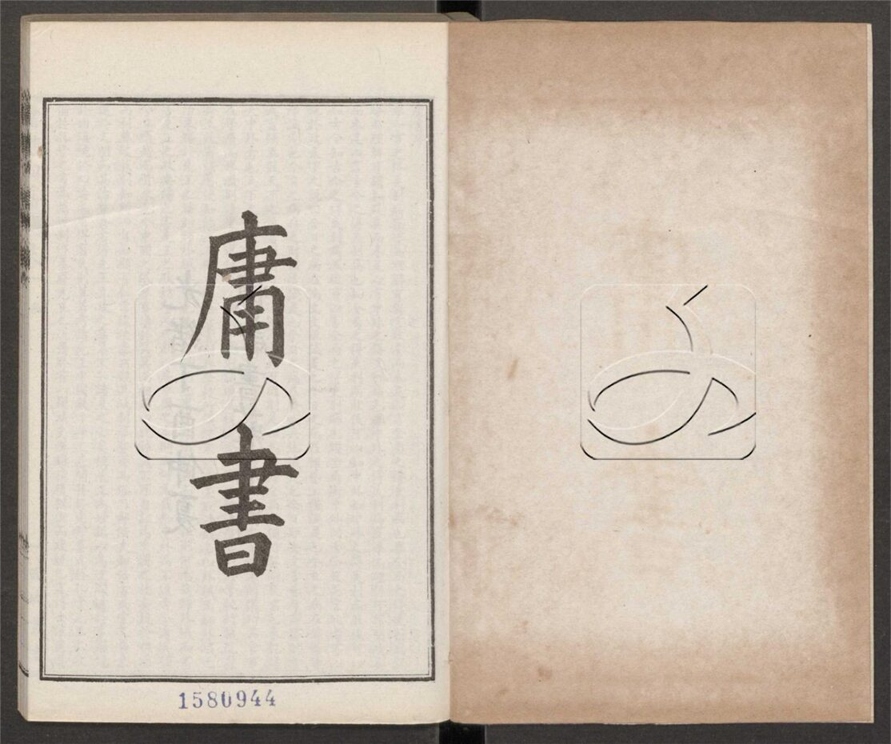 庸書
1580944